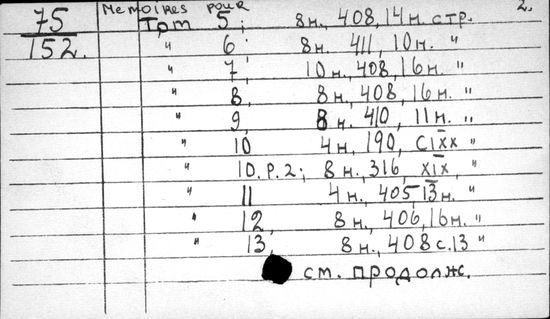 75 Memoires pour Том 5; 8н., 408, 14н. стр. 2.
152. " 6; 8н. 411, 10н. "
" 7; 10н., 408, 16н. "
" 8, 8н., 408, 16н. "
" 9, 8н. 410, 11н. "
" 10 4н, 190, cixx "
" 10.P.2; 8н., 316, XIX, "
" 11 4н. 405, 13н. "
" 12, 8н., 406, 16н. "
" 13, 8н., 408 с. 13 "
см. продолж.